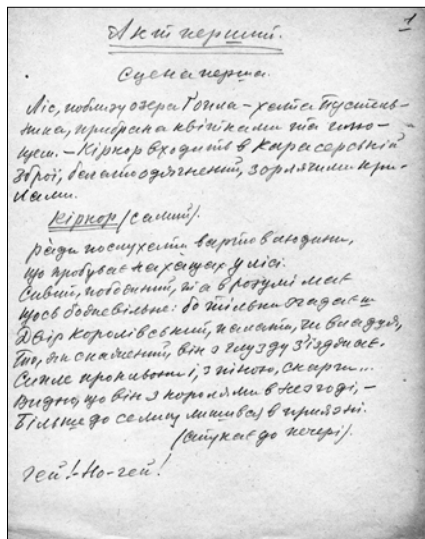 1
Акт перший.
Сцена перша.
Ліс, поблизу озера Ґопла – хата Пустель-
ника, прибрана квітками та плю-
щем. – Кіркор входить в карасерській
зброї, багато одягнений, з орлячими кри-
лами.
Кіркор (самий).
Ради послухати варто в людини,
що пробуває на хащах у лісі.
Сивий, побожний, та в розумі має
щось божевільне: бо тільки згадаєш
Двір королівський, палати, чи владуя,
він з глузду з'їзджає.
Сипле прокльони і, з піною, скарги...
Видно, що він з королями в незгоді, –
Більше до селищ лишився в приязні.
(стукає до печері).
Гей! – Но-гей!